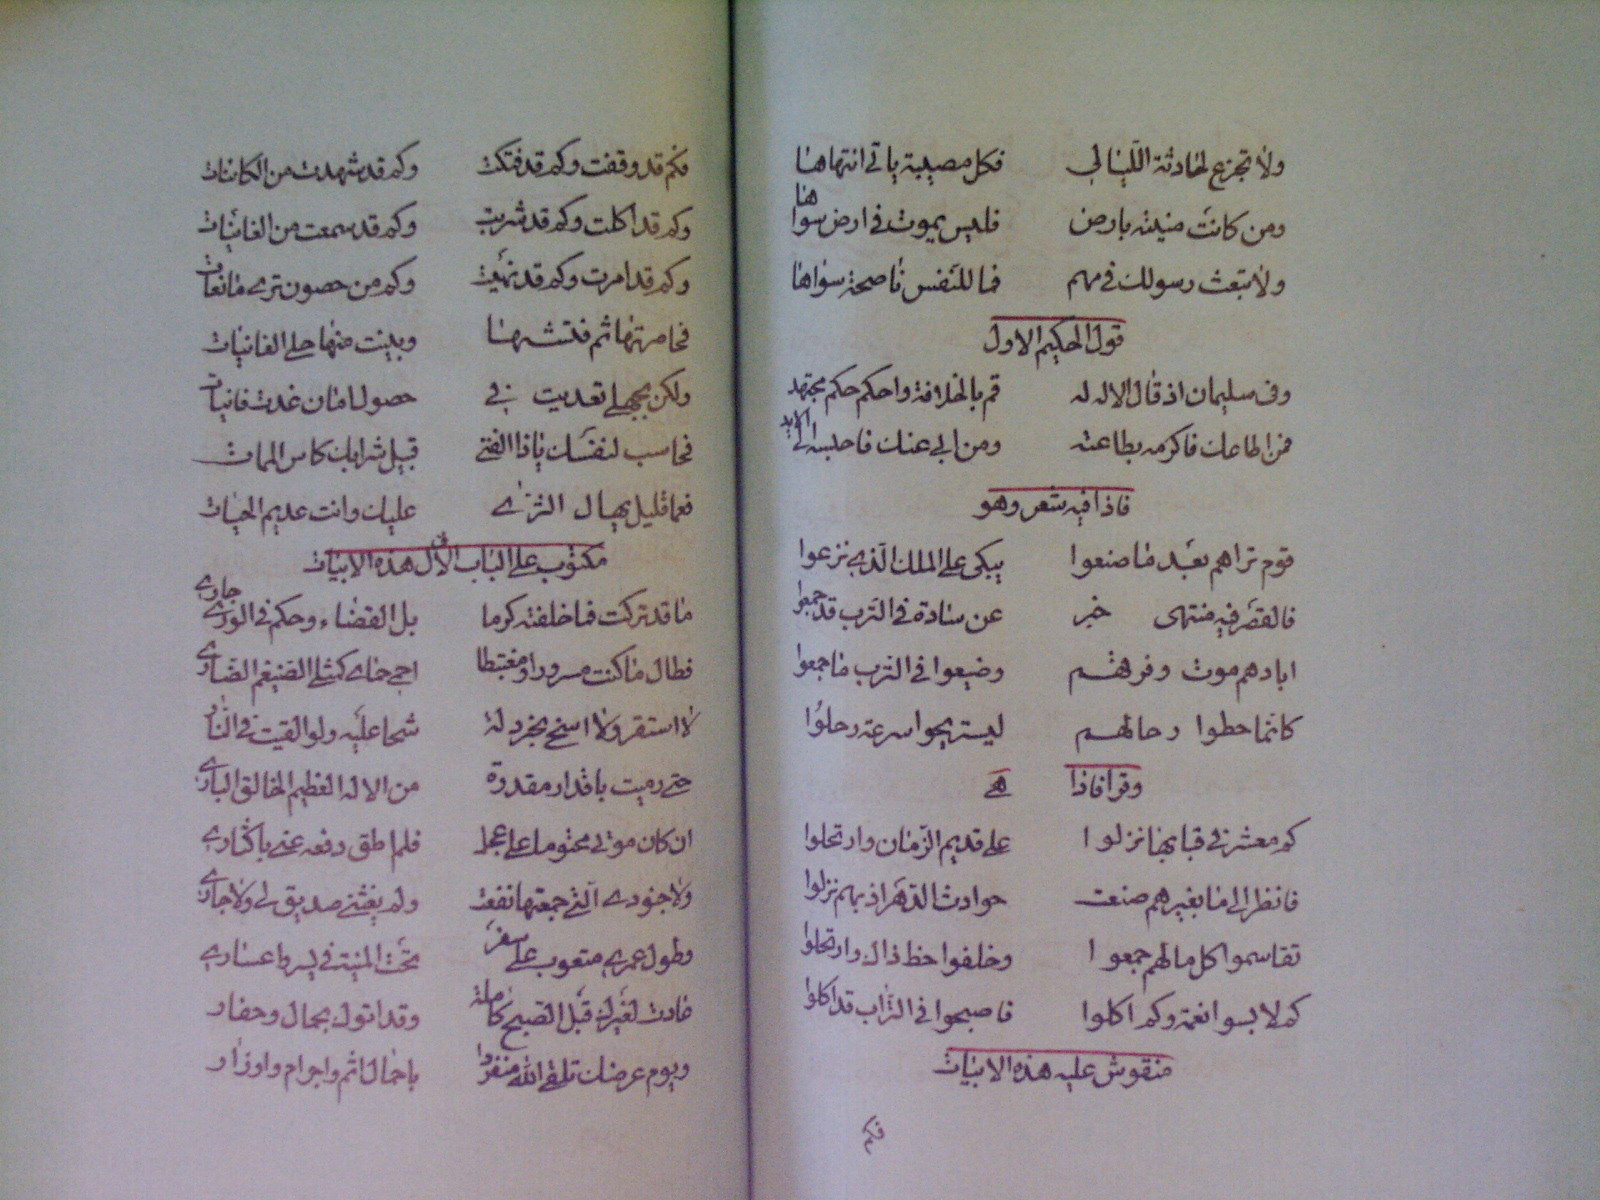 ولا تجزع لحادثة الليالي فكل مصيبة ياتي انتهاها
ومن كانت منيته بارض فليس يموت في ارض سواها
ولا تبعث رسولك في مهم فما للنفس ناصحة سواها
قول الحكيم الاول
وفى سليمان اذ قال الاله له قم بالخلافة واحكم حكم مجتهد
فمن اطاعك فاكرمه بطاعته ومن ابى عنك فاحبسه الى الابد
فاذا فيه شعر وهو
قوم تراهم بعد ما صنعوا يبكى على الملك الذي نزعوا
فالقصر فيه منتهى خبر عن سادة في الترب قد جمعوا
ابادهم موت وفرقهم وضيعوا في الترب ما جمعوا
كانما حطوا رحالهم ليستريحوا سرعة رحلوا
وقرا فاذا هي
كم معشر في قبابها نزلوا على قديم الزمان وارتحلوا
فانظر الى ما بغيرهم صنعت حوادث الدهر اذ بهم نزلوا
تقاسموا كل مالهم جمعوا وخلفوا حظ ذاك وارتحلوا
كم لابسوا نعمة وكم اكلوا فاصبحوا في التراب قد اكلوا
منقوش عليه هذه الابيات
فكم
فكم قد وقفت وكم قد فتكت وكم قد شهدت من الكائنات
وكم قد اكلت وكم قد شربت وكم قد سمعت من الغانيات
وكم قد امرت وكم قد نهيت وكم من حصون ترى مانعات
فحاصرتها ثم فتشتها وبينت منها حلي الغانيات
ولكن بجهلي تعديت في حصول امان غدت فانيات
فحاسب لنفسك ياذا الفتى قبيل شرابك كاس الممات
فعما قليل يهال الثرى عليك وانت عديم الحيات
مكتوب على الباب الاول هذه الابيات
ما قد تركت فما خلفته كرما بل القضاء وحكم في الورى جاري
فطال ما كنت مسرورا ومغتبطا احمي حماي كمثل الضيغم الضاري
لا استقر ولا اسخي بخردلة شحا عليه ولو القيت في النار
حتى رميت باقدار مقدرة من الاله العظيم الخالق الباري
ان كان موتي محتوما على عجل فلم اطق دفعه عني باكثاري
ولا جنودي التي جمعتها نفعت ولم يغثني صديق لي ولا جاري
وطول عمري متعوب على سفر تحت المنية في يسر واعساري
صارت لغيرك قبل الصبح كاملة وقد اتوك بجمال وحفار
ويوم عرضك تلقى الله منفردا باحمال اثم واجرام واوزار